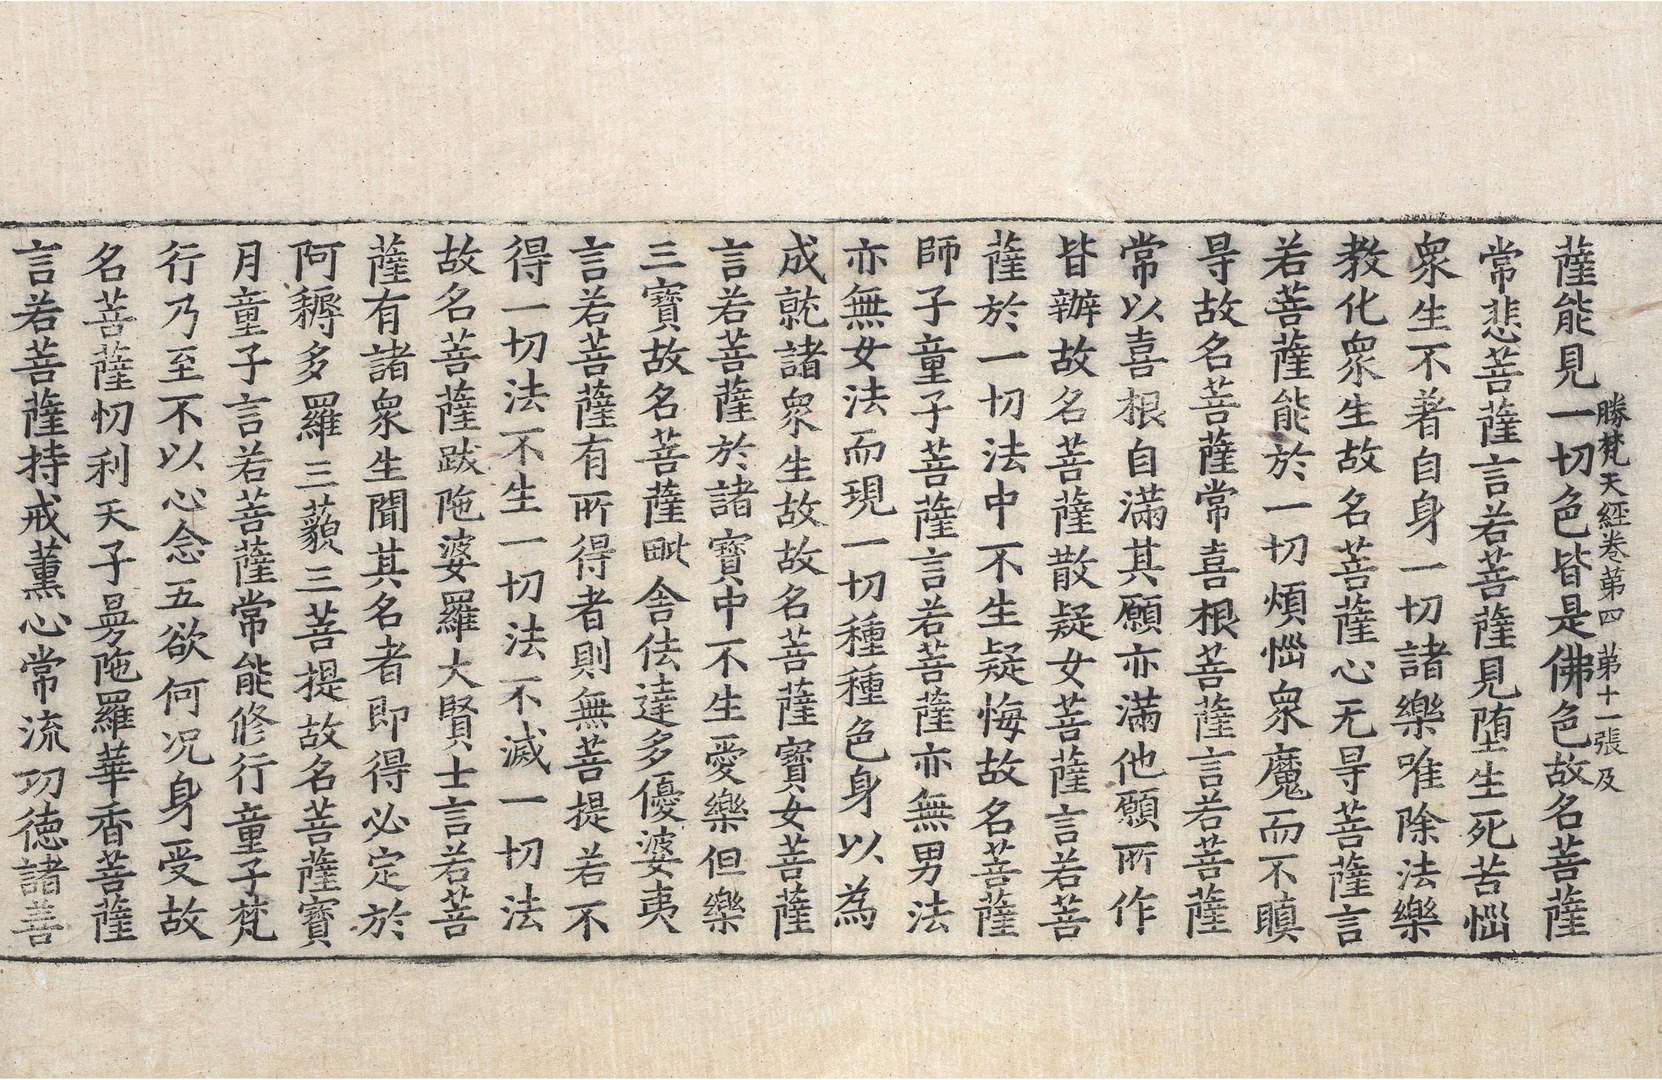 薩能見一切色皆是佛色故名菩薩
勝梵天經卷第四 第十一張 及
常悲菩薩言若菩薩見堕生死苦惱
衆生不著自身一切諸樂唯除法樂
教化衆生故名菩薩心无㝵菩薩言
若菩薩能於一切煩惱衆魔而不瞋
㝵故名菩薩常喜根菩薩言若菩薩
常以喜根自滿其願亦滿他願所作
皆辦故名菩薩散疑女菩薩言若菩
薩於一切法中不生疑悔故名菩薩
師子童子菩薩言若菩薩亦無男法
亦無女法而現一切種種色身以為
成就諸衆生故故名菩薩寶女菩薩
言若菩薩於諸寶中不生愛樂但樂
三寶故名菩薩毗舍佉達多優婆夷
言若菩薩有所得者則無菩提若不
得一切法不生一切法不滅一切法
故名菩薩跋陁婆羅大賢士言若菩
薩有諸衆生聞其名者即得必定於
阿耨多羅三藐三菩提故名菩薩寶
月童子言若菩薩常能修行童子梵
行乃至不以心念五欲何况身受故
名菩薩忉利天子曼陁羅華香菩薩
言若菩薩持戒薰心常流功德諸善